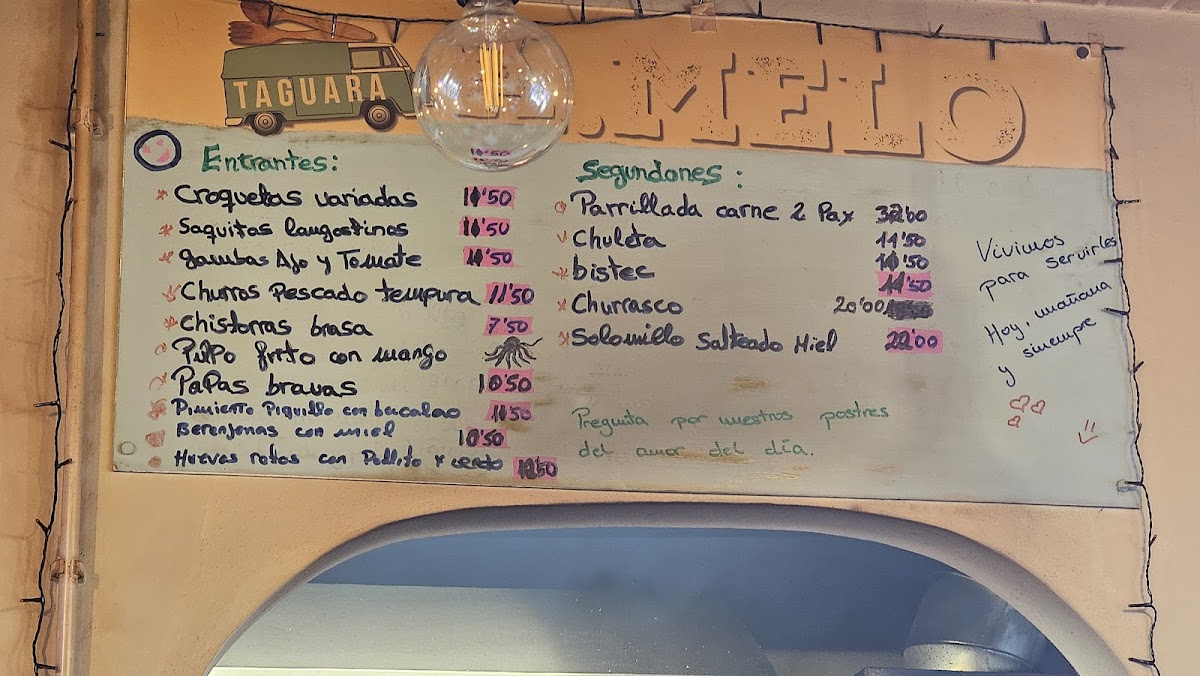 TAGUARA
MELO
Entrantes:
Croquetas variadas 11'50
Saquitos langostinos 11'50
gambas Ajo y Tomate 11'50
Churros Pescado tempura 11'50
Chistorras brasa 7'50
Pulpo frito con mango
Papas bravas 10'50
Pimiento Piquillo con bacalao 11'50
Berenjenas con miel 10'50
Huevos rotos con Pollito y cerdo
Segundones:
Parrillada carne 2 Pax
Chuleta 11'50
bistec
11'50
Churrasco 20'00
Solomillo Salteado Miel 22'00
Pregunta por nuestros postres
del amor del día.
Vivimos
para servirles
Hoy, mañana
y siempre